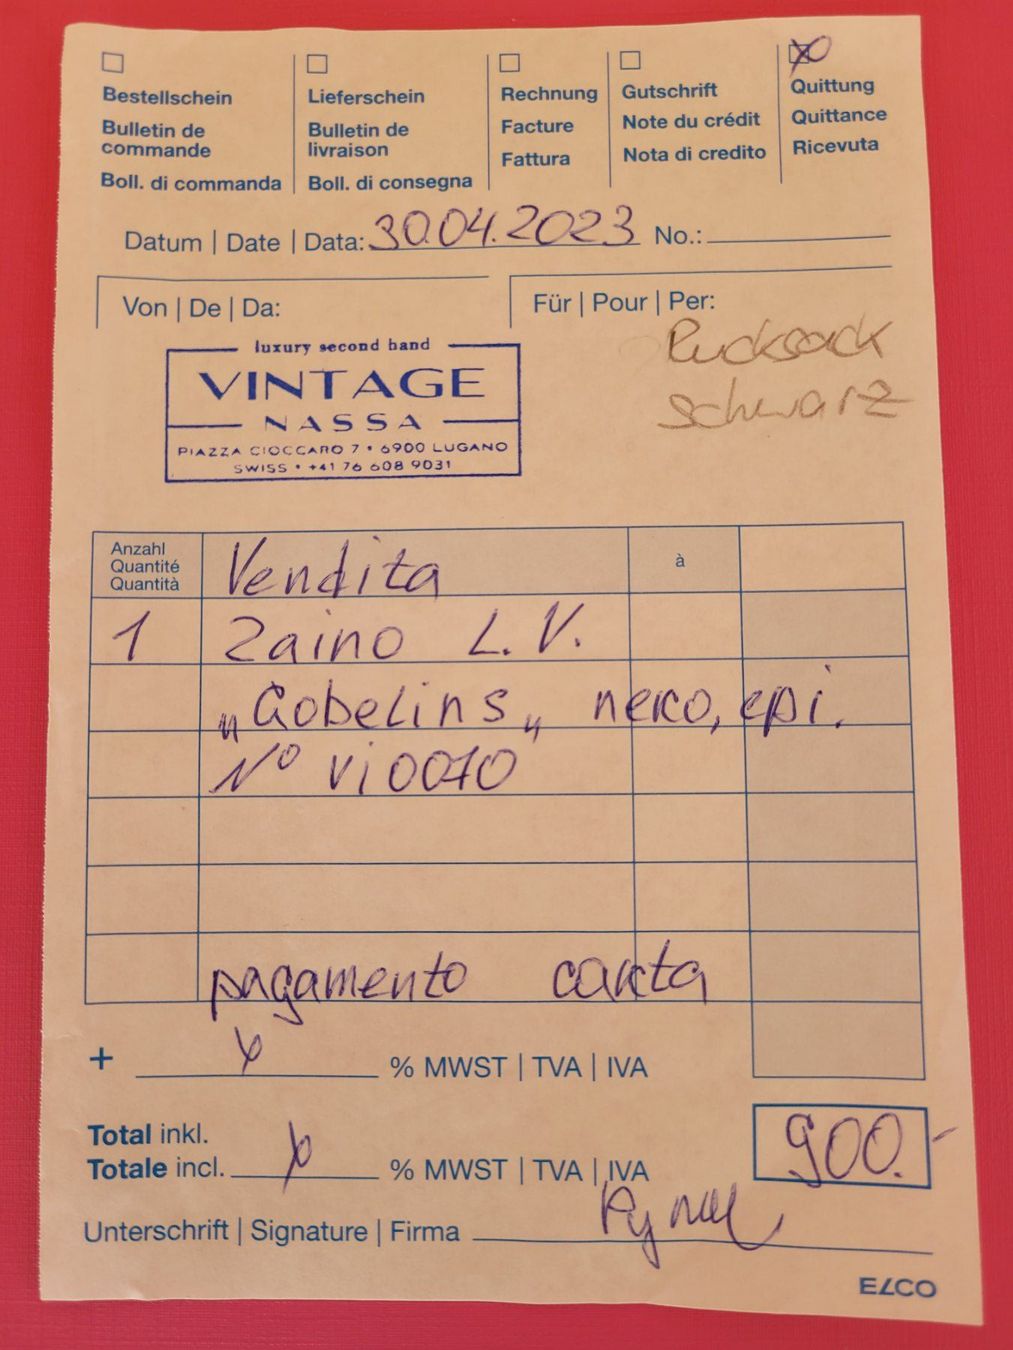 Bestellschein
Bulletin de
commande
Boll. di commanda
Lieferschein
Bulletin de
livraison
Boll. di consegna
Rechnung
Facture
Fattura
Gutschrift
Note du crédit
Nota di credito
Quittung
Quittance
Ricevuta
Datum | Date | Data: 30.04.2023 No.:
Von | De | Da:
Für | Pour | Per:
Rucksack
schwarz
luxury second hand
VINTAGE
NASSA
PIAZZA CIOCCARO 7 • 6900 LUGANO
SWISS • +41 76 608 9031
Anzahl
Quantité
Quantità
Vendita à
1 Zaino L.V.
„Gobelins„ nero, epi.
N° vi0070
pagamento carta
+ % MWST | TVA | IVA
Total inkl.
Totale incl. % MWST | TVA | IVA
900.-
Unterschrift | Signature | Firma
ELCO